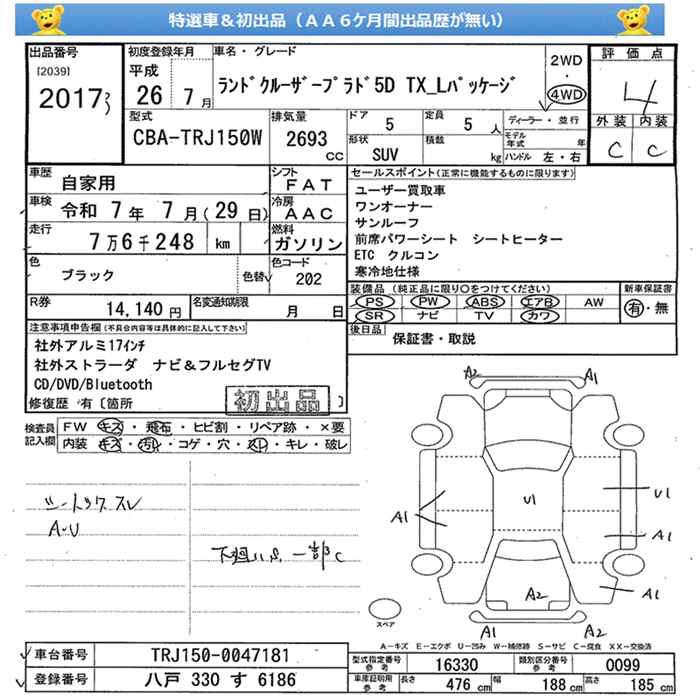 特選車&初出品(AA6ケ月間出品歴が無い)
出品番号
[2039]
2017
初度登録年月
平成
26 7月
車名・グレード
ランドクルーザープラド5D TX_Lパッケージ
2WD
・
4WD
評価点
4
外装 内装
C C
型式
CBA-TRJ150W
排気量
2693
CC
ドア
5
定員
5人
形状
SUV
積載
kg
ディーラー・並行
モデル年式 年
ハンドル 左・右
車歴
自家用
シフト
FAT
車検
令和 7年 7月(29日)
冷房
AAC
走行
7万6千248 km
燃料
ガソリン
色
ブラック
色替
色コード
202
R券
14,140円
名変通知期限
月 日
セールスポイント(正常に機能するものに限ります)
ユーザー買取車
ワンオーナー
サンルーフ
前席パワーシート シートヒーター
ETC クルコン
寒冷地仕様
装備品 (純正品に限り○をつけてください)
PS PW ABS エアB AW
SR ナビ TV カワ
新車保証書
有・無
後日品
保証書・取説
注意事項申告欄(不具合内容等は具体的に記入して下さい)
社外アルミ17インチ
社外ストラーダ ナビ&フルセグTV
CD/DVD/Bluetooth
初出品
修復歴 有〔箇所 〕
検査員記入欄
FW キズ・飛石・ヒビ割・リペア跡・×要
内装 キズ・汚れ・コゲ・穴・スレ・キレ・破レ
シートックスレ
A・U
下廻りS 一部C
A2 A1
U1
U1
A1
A1
A2
A1
A1 A2
スペア
A-キズ E-エクボ U-凹み W-補修跡 S-サビ C-腐食 XX-交換済
車台番号
TRJ150-0047181
登録番号
八戸 330 す 6186
型式指定番号
参考
16330
類別区分番号
参考
0099
車庫証明用
参考
長さ 476 cm
幅 188 cm
高さ 185 cm